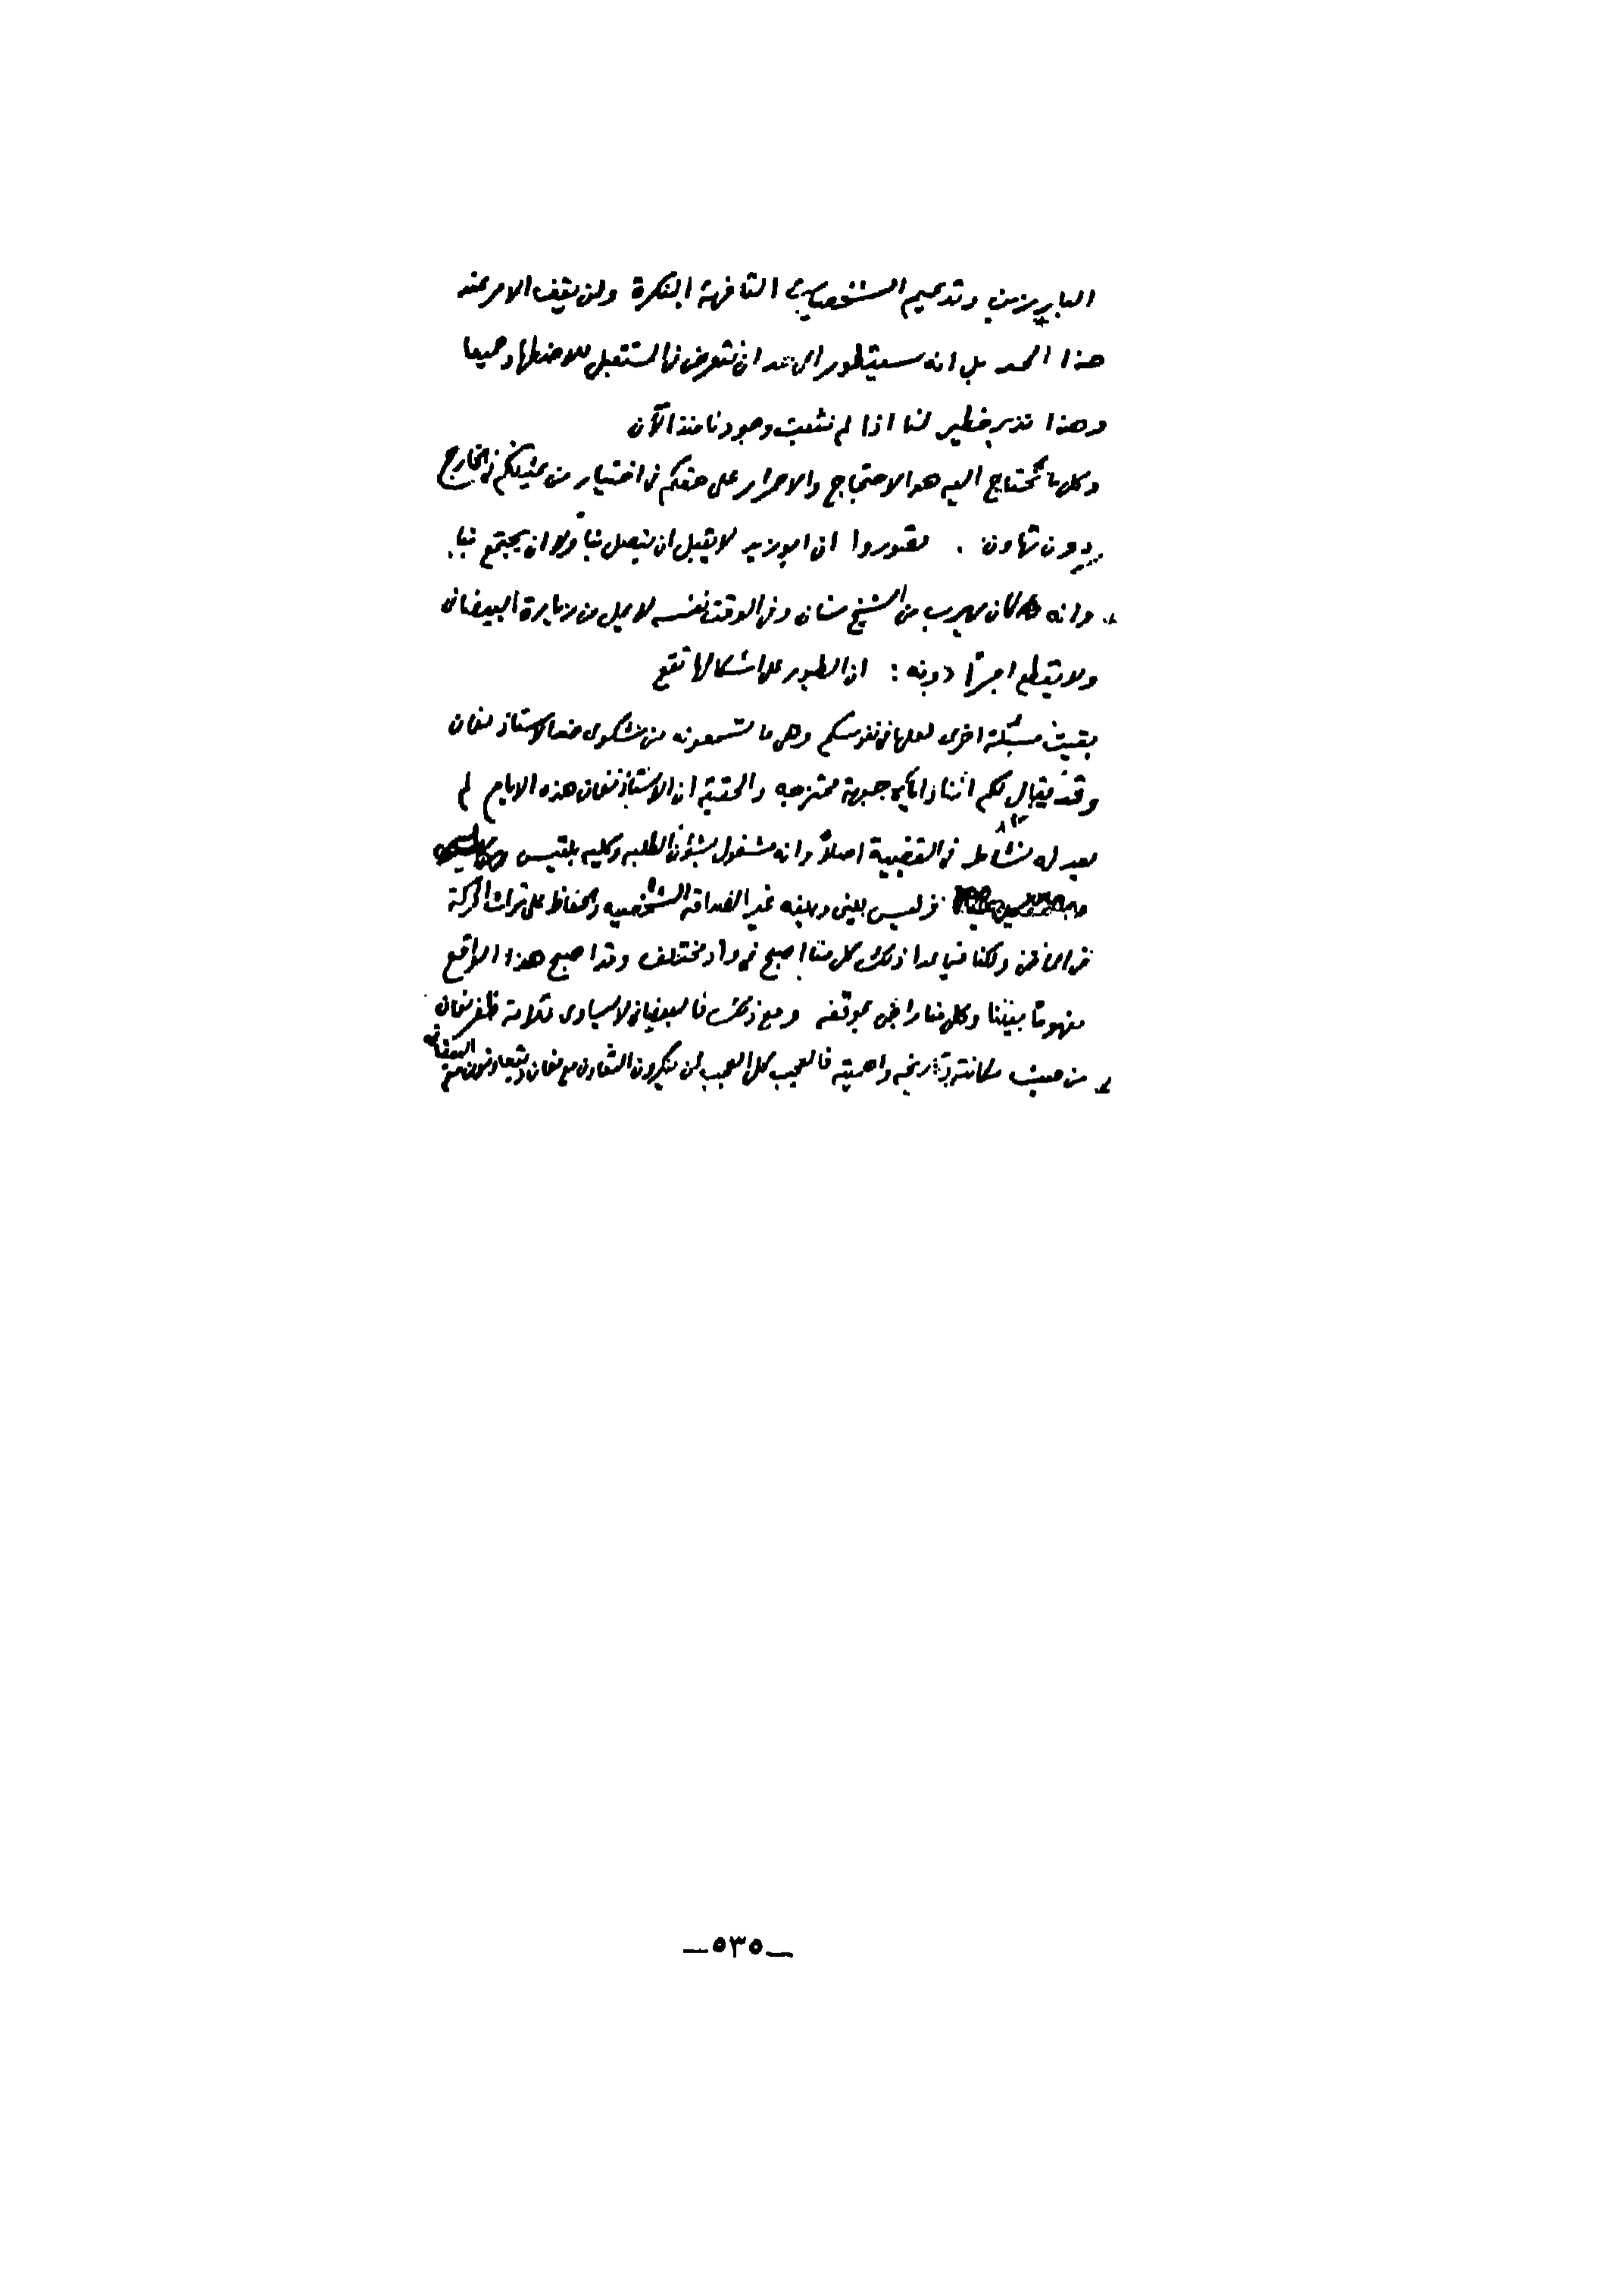 البارزين وتدعيم الشخصيات التافهة النكرة ولن يقف الامر عند
هذا الحد بل انه سيتطور الى حد ان نتعرض في المستقبل للاضطهاد جميعا
وهذا نذير خطير لنا اذا لم نثبت وجودنا منذ الآن
وكل ما تحتاج اليه هو الاحتجاج والاصرار على حقكم في اختيار من يمثلكم في الخارج
دون تهاون . تصوروا ان ابو زيد لا يقبل ان يتصل بنا ولا ان يجتمع بنا
وانه كان يهرب من الشيخ سنان وفي الوقت نفسه لا يمل من زيارة البيضاني
ولا يقطع امراً دونه : ان الطيور على اشكالها تقع
بقيت مسئلة اخرى لعلها في نفوسكم وهي ما تسمعونه من شكوى ضد الاستاذ نعمان
وقد يقال لكم اننا واياه جبهة ممتزجه والحقيقة ان الاستاذ نعمان هذه الايام لم
يعد له نشاط في القضية اصلاً وانه مشغول بشئون الطلبه وكليه بلقيس
فليس بيني وبينه غير الصداقة الشخصيه والحفاظ على تراث الحركة
في الماضي ولكنا فيما عدا ذلك كل منا اصبح في واد مختلف وقد اصبح هذا الواقع
مفهوماً بيننا وكل منا راض بموقفه ومع ذلك فالبيضاني لا يساوى قلامة ظفر نعمان
من حيث مكانته وتاريخه واهميته فالعجب كل العجب لمن ينكرون التعاون مع نعمان ويتعاونون مع البيضاني
ــ٥٣٥ــ